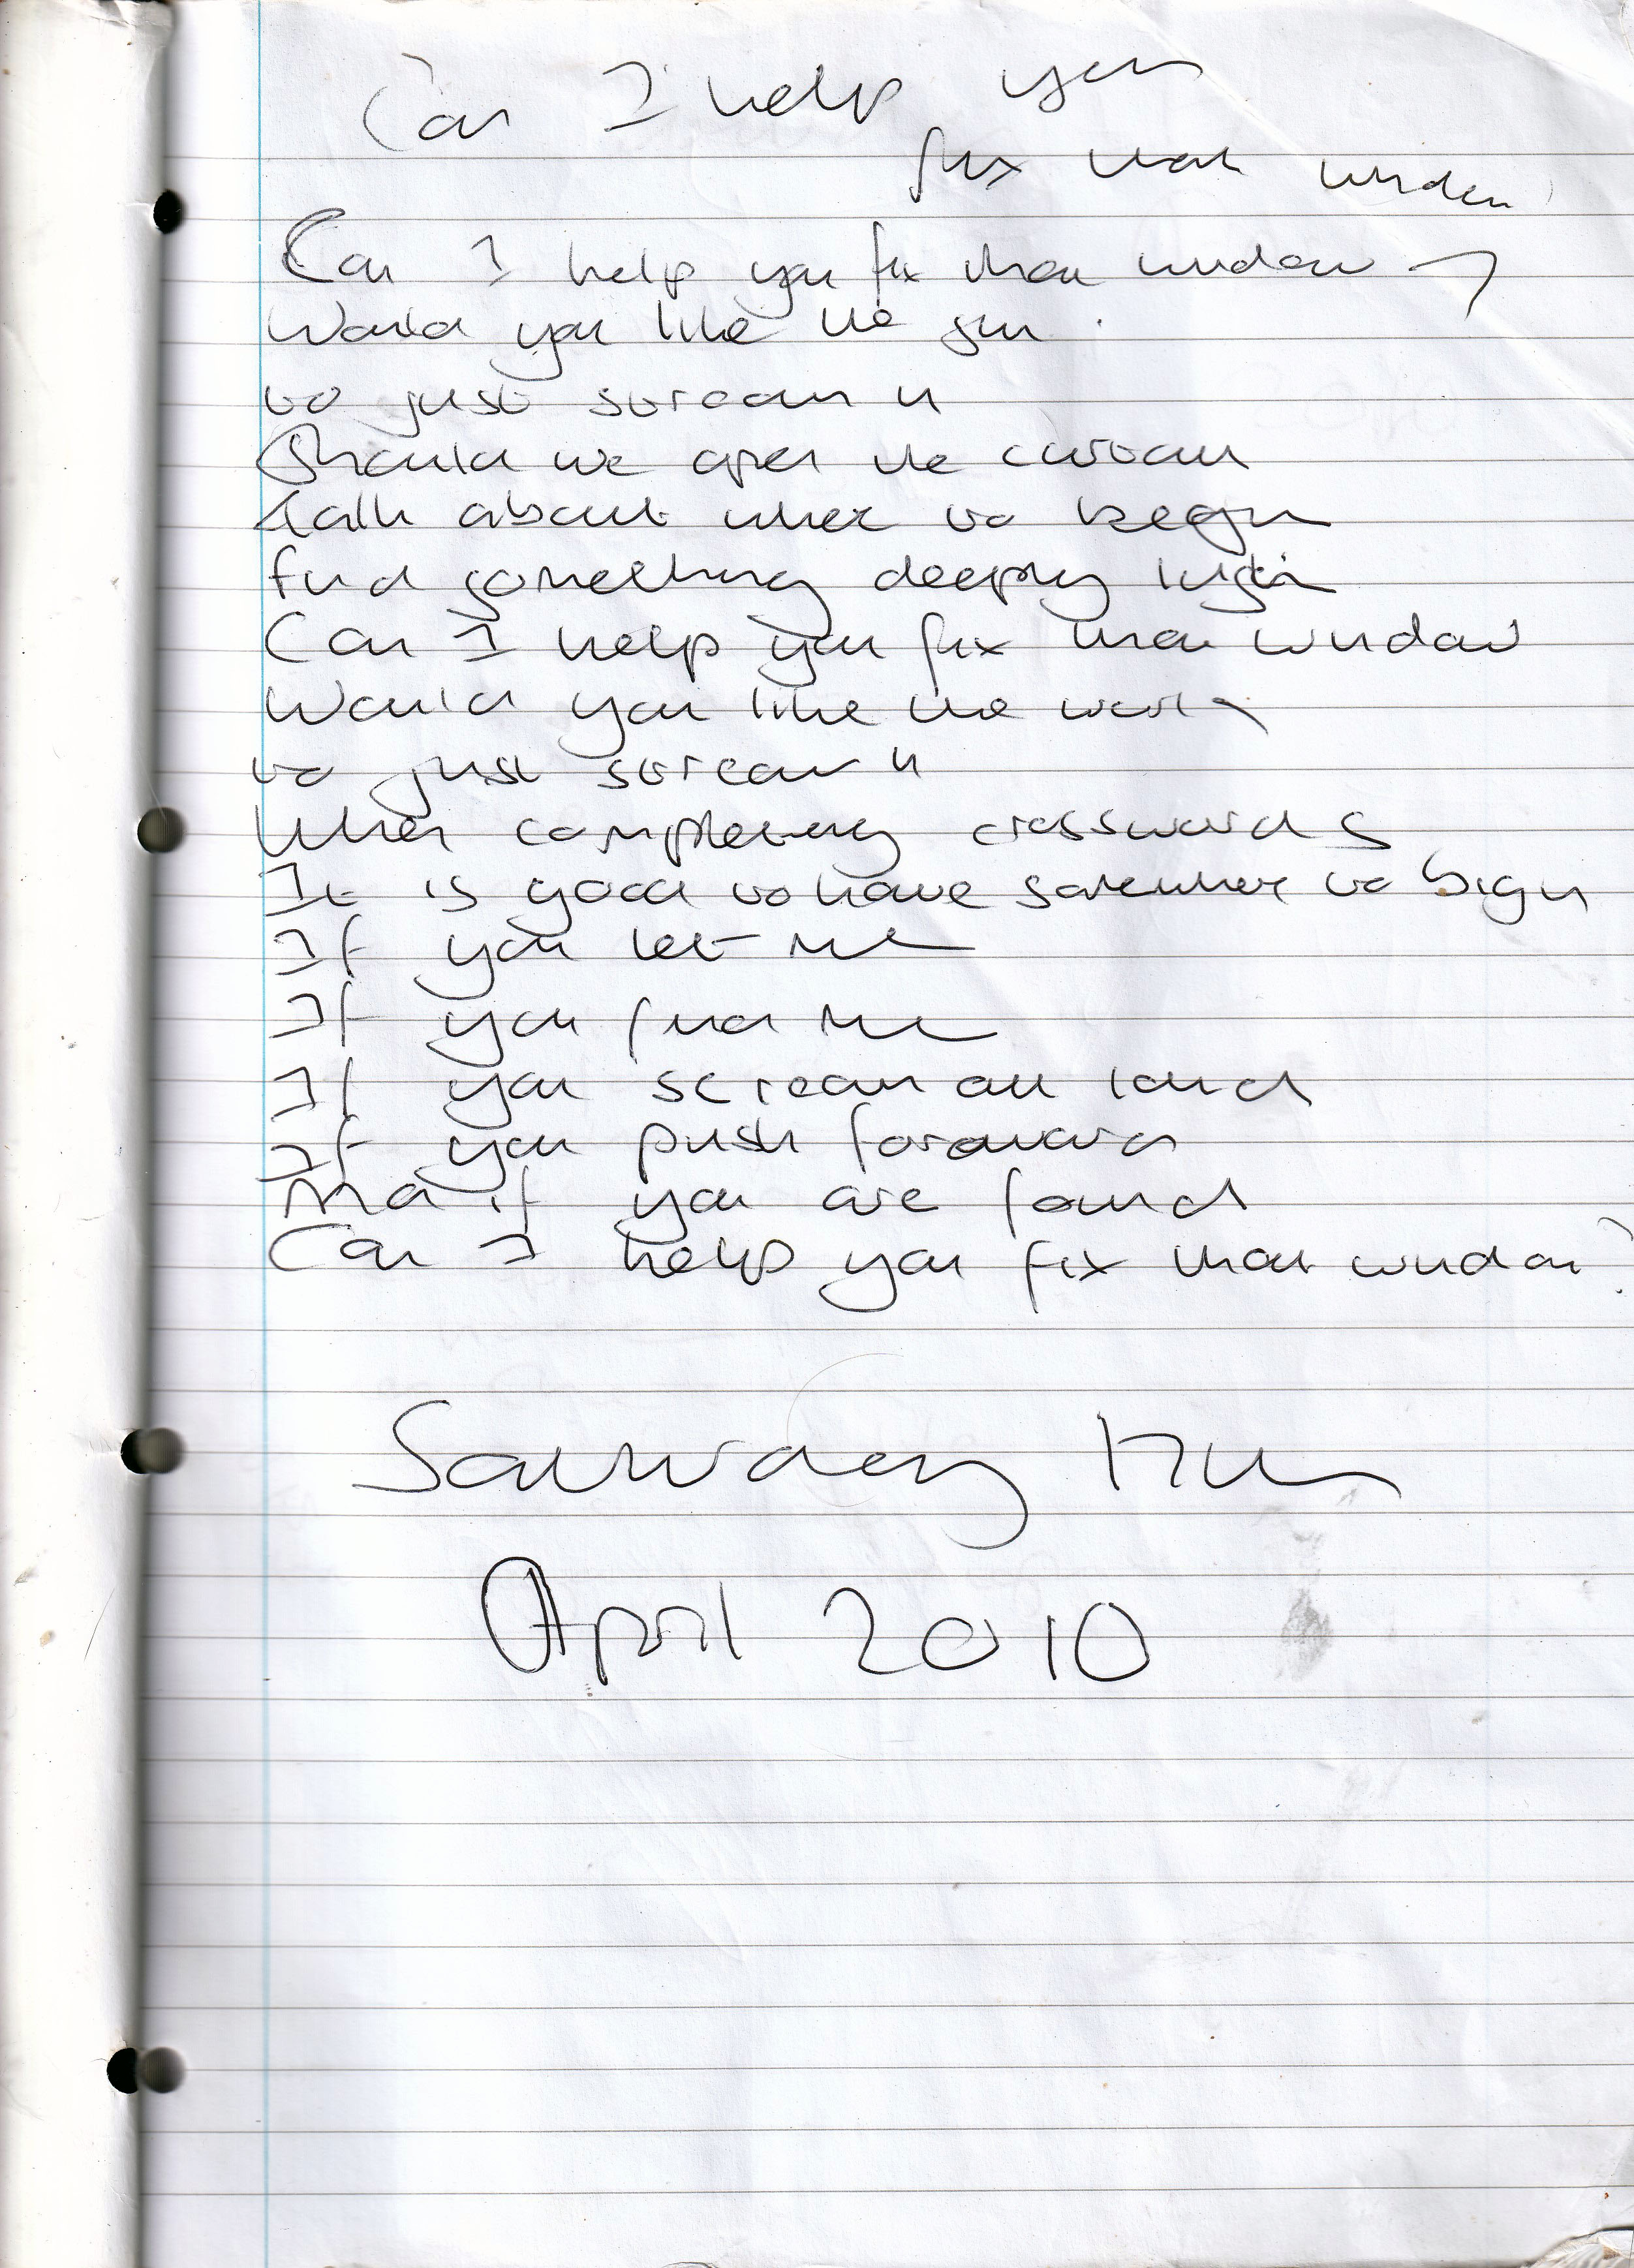 Can I help you
fix that window
Can I help you fix that window?
Would you like the sun
to just stream in
Should we open the curtain
talk about where to begin
find something deeply
Can I help you fix that window
Would you like the world
to just stream in
When completing crosswords
It is good to have somewhere to begin
If you let me
If you find me
If you scream out loud
If you push forward
And if you are found
Can I help you fix that window?
April 2010